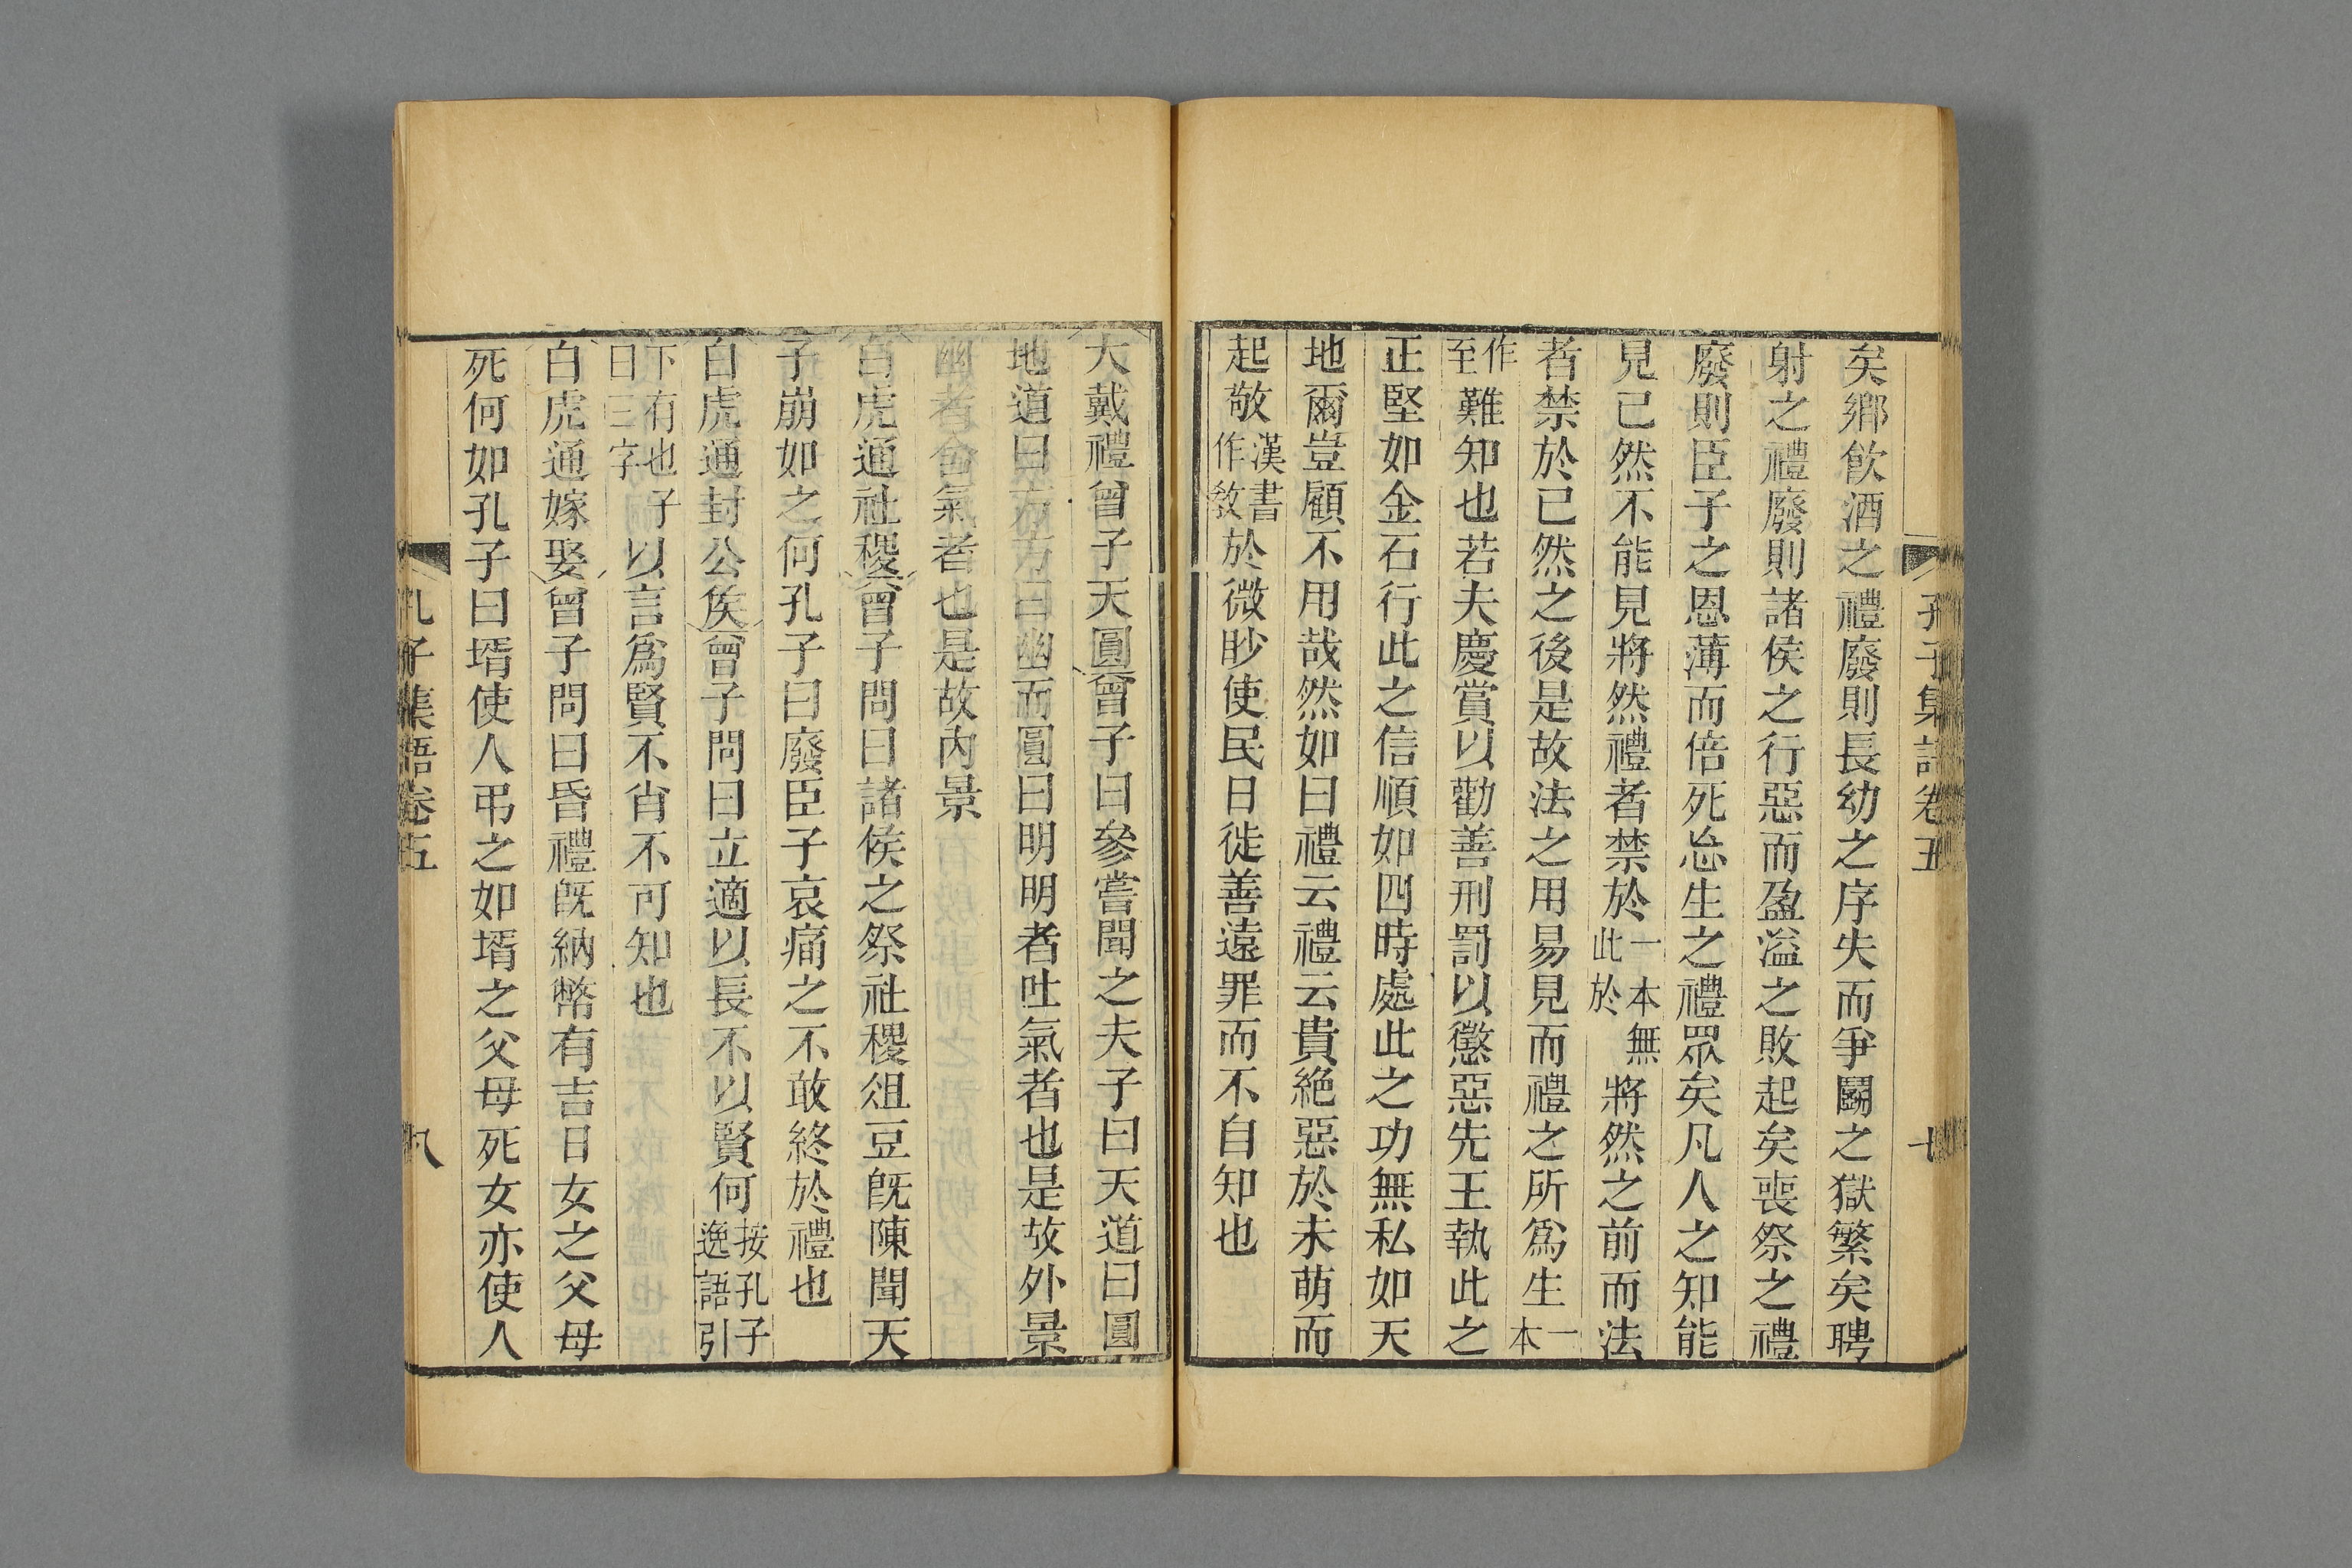 孔子集語卷五 七
矣鄉飲酒之禮廢則長幼之序失而爭鬭之獄繁矣聘
射之禮廢則諸侯之行惡而盈溢之敗起矣喪祭之禮
廢則臣子之恩薄而倍死忘生之禮眾矣凡人之知能
見已然不能見將然禮者禁於一本無此於將然之前而法
者禁於已然之後是故法之用易見而禮之所為生一本
作至難知也若夫慶賞以勸善刑罰以懲惡先王執此之
正堅如金石行此之信順如四時處此之功無私如天
地爾豈顧不用哉然如曰禮云禮云貴絕惡於未萌而
起敬漢書作敎於微眇使民日徙善遠罪而不自知也
大戴禮曾子天圓曾子曰參嘗聞之夫子曰天道曰圓
地道曰方方曰幽而圓曰明明者吐氣者也是故外景
幽者含氣者也是故內景
白虎通社稷曾子問曰諸侯之祭社稷俎豆既陳聞天
子崩如之何孔子曰廢臣子哀痛之不敢終於禮也
白虎通封公侯曾子問曰立適以長不以賢何按孔子逸語引
下有也子曰三字以言為賢不肖不可知也
白虎通嫁娶曾子問曰昏禮既納幣有吉日女之父母
死何如孔子曰壻使人弔之如壻之父母死女亦使人
孔子集語卷五 八